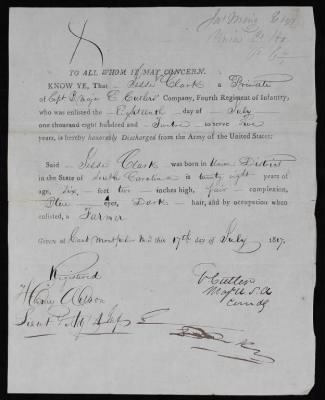 TO ALL WHOM IT MAY CONCERN.
KNOW YE, That Jesse Clark a Private
of Capt & Major E Cutlers Company, Fourth Regiment of Infantry,
who was enlisted the Eighteenth day of July
one thousand eight hundred and to serve five
years, is hereby honorably Discharged from the Army of the United States:
Said Jesse Clark was born in Union District
in the State of South Carolina is twenty eight years of
age, six feet two inches high, fair complexion,
Blue eyes, Dark hair, and by occupation when
enlisted, a Farmer
Given at Camp this 17th day of July 1817.
Registered
E Cutler
Henry Wilson
Maj U.S.A
Lieut & Adj 4 Inf
Comdg